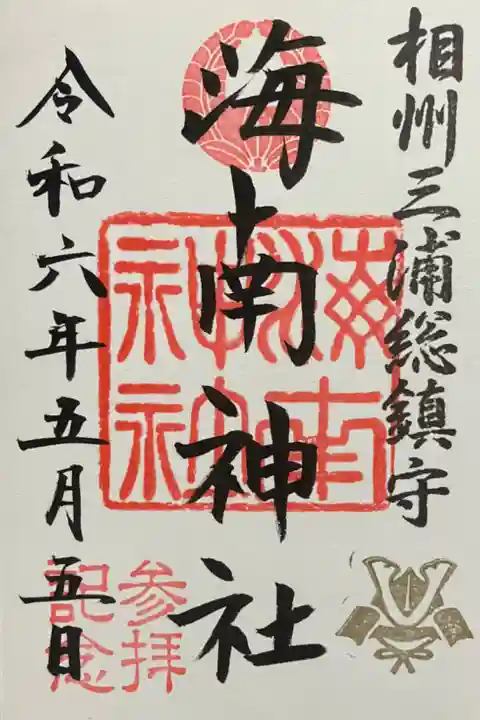 相州三浦総鎮守
海南神社
令和六年五月五日
参拝
記念